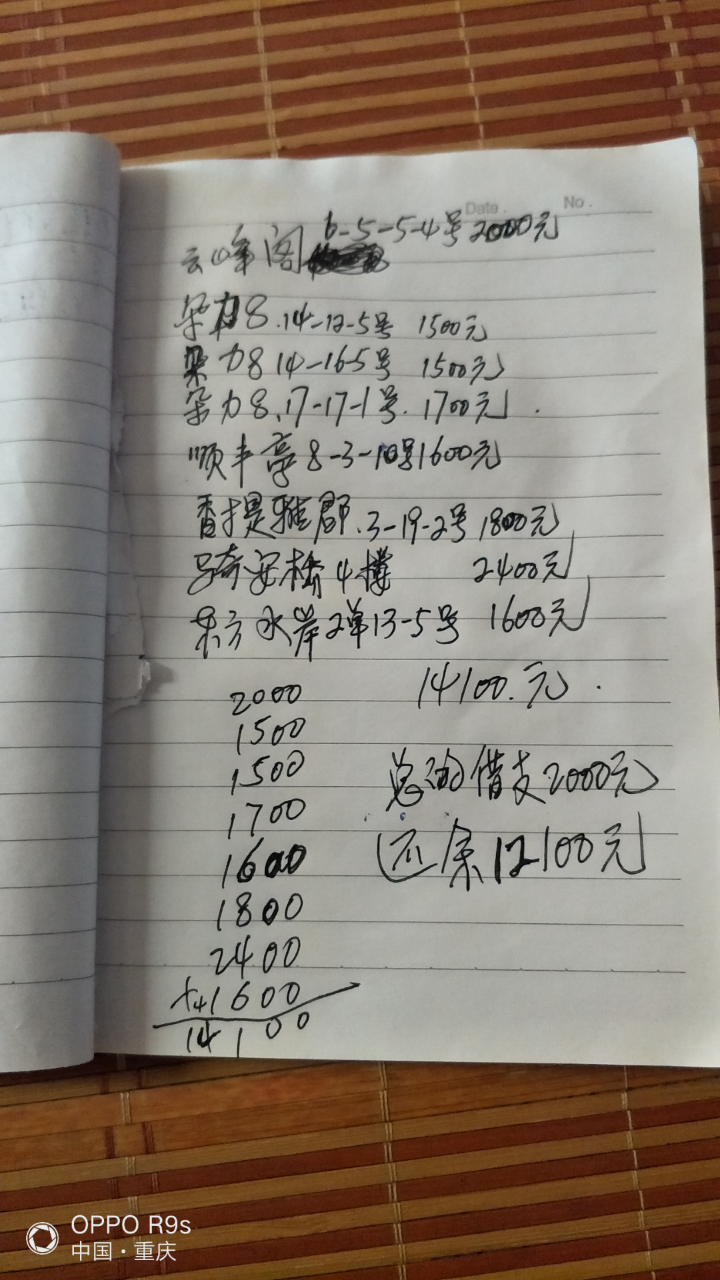 Date. No.
云峰阁 6-5-5-4号2000元
朵力8.14-12-5号 1500元
朵力8 14-16-5号 1500元
朵力8.17-17-1号.1700元.
顺丰亭8-3-10号1600元
香提雅郡.3-19-2号1800元
安桥4楼 2400元
东方水岸2单13-5号 1600元
2000
14100.元.
1500
1500
总的借支2000元
1700
还余12100元
1600
1800
2400
+1600
14100
OPPO R9s
中国·重庆